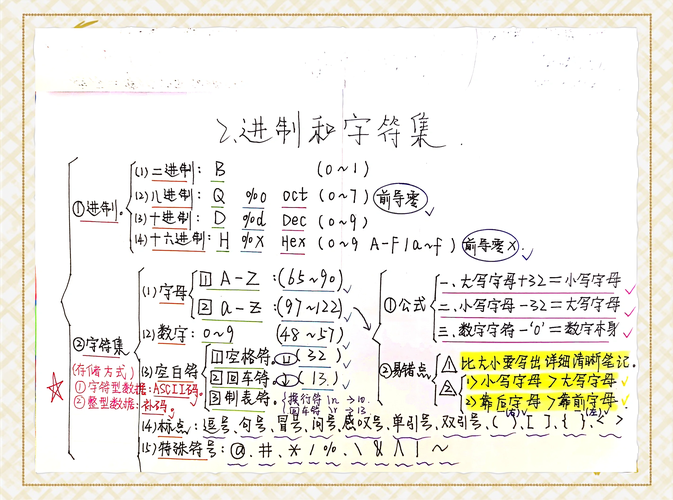 2.进制和字符集.
①进制.
(1)二进制: B (0~1)
(2)八进制: Q %o oct (0~7) 前导零
(3)十进制: D %d Dec (0~9)
(4)十六进制: H %x Hex (0~9 A-F/a~f) 前导零x.
②字符集
(存储方式)
①字符型数据:ASCII码.
②整型数据:补码.
(1)字母
1 A-Z :(65~90)
2 a-z :(97~122)
(2)数字: 0~9 (48~57)
(3)空白符
1空格符.(32)
2回车符.(13)
3制表符.
换行符 \n → 10.
回车符 \r → 13.
(4)标点: 逗号、句号、冒号、问号、感叹号、单引号、双引号、( )、[ ]、{ }、< >
(右) (左)
(5)特殊符号: @、#、* / %、\ & ∧ | ~
①公式
一、大写字母+32=小写字母
二、小写字母-32=大写字母
三、数字字符-'0'=数字本身
②易错点
1 比大小要写出详细清晰笔记.
2 1)小写字母>大写字母
2)靠后字母>靠前字母